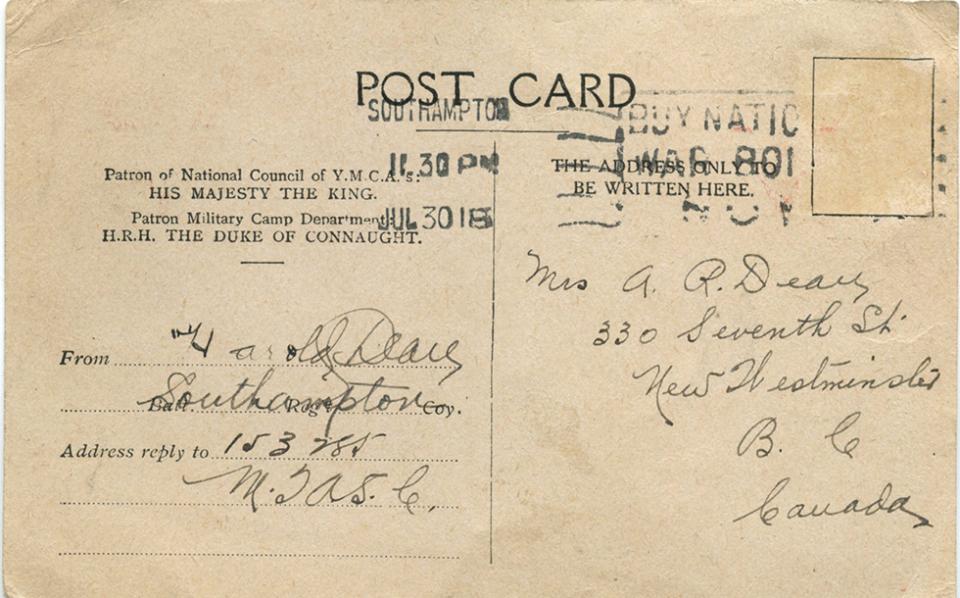 POST CARD
SOUTHAMPTON
11.30 PM
JUL 30 18
BUY NATIO
WAR BO
NO
Patron of National Council of Y.M.C.A.'s:
HIS MAJESTY THE KING.
Patron Military Camp Department:
H.R.H. THE DUKE OF CONNAUGHT.
From Harold Deary
Southampton
Batt. Regt. Coy.
Address reply to 153285
M.T. A.S.C.
THE ADDRESS ONLY TO
BE WRITTEN HERE.
Mrs A. R. Deary
330 Seventh St
New Westminster
B. C
Canada